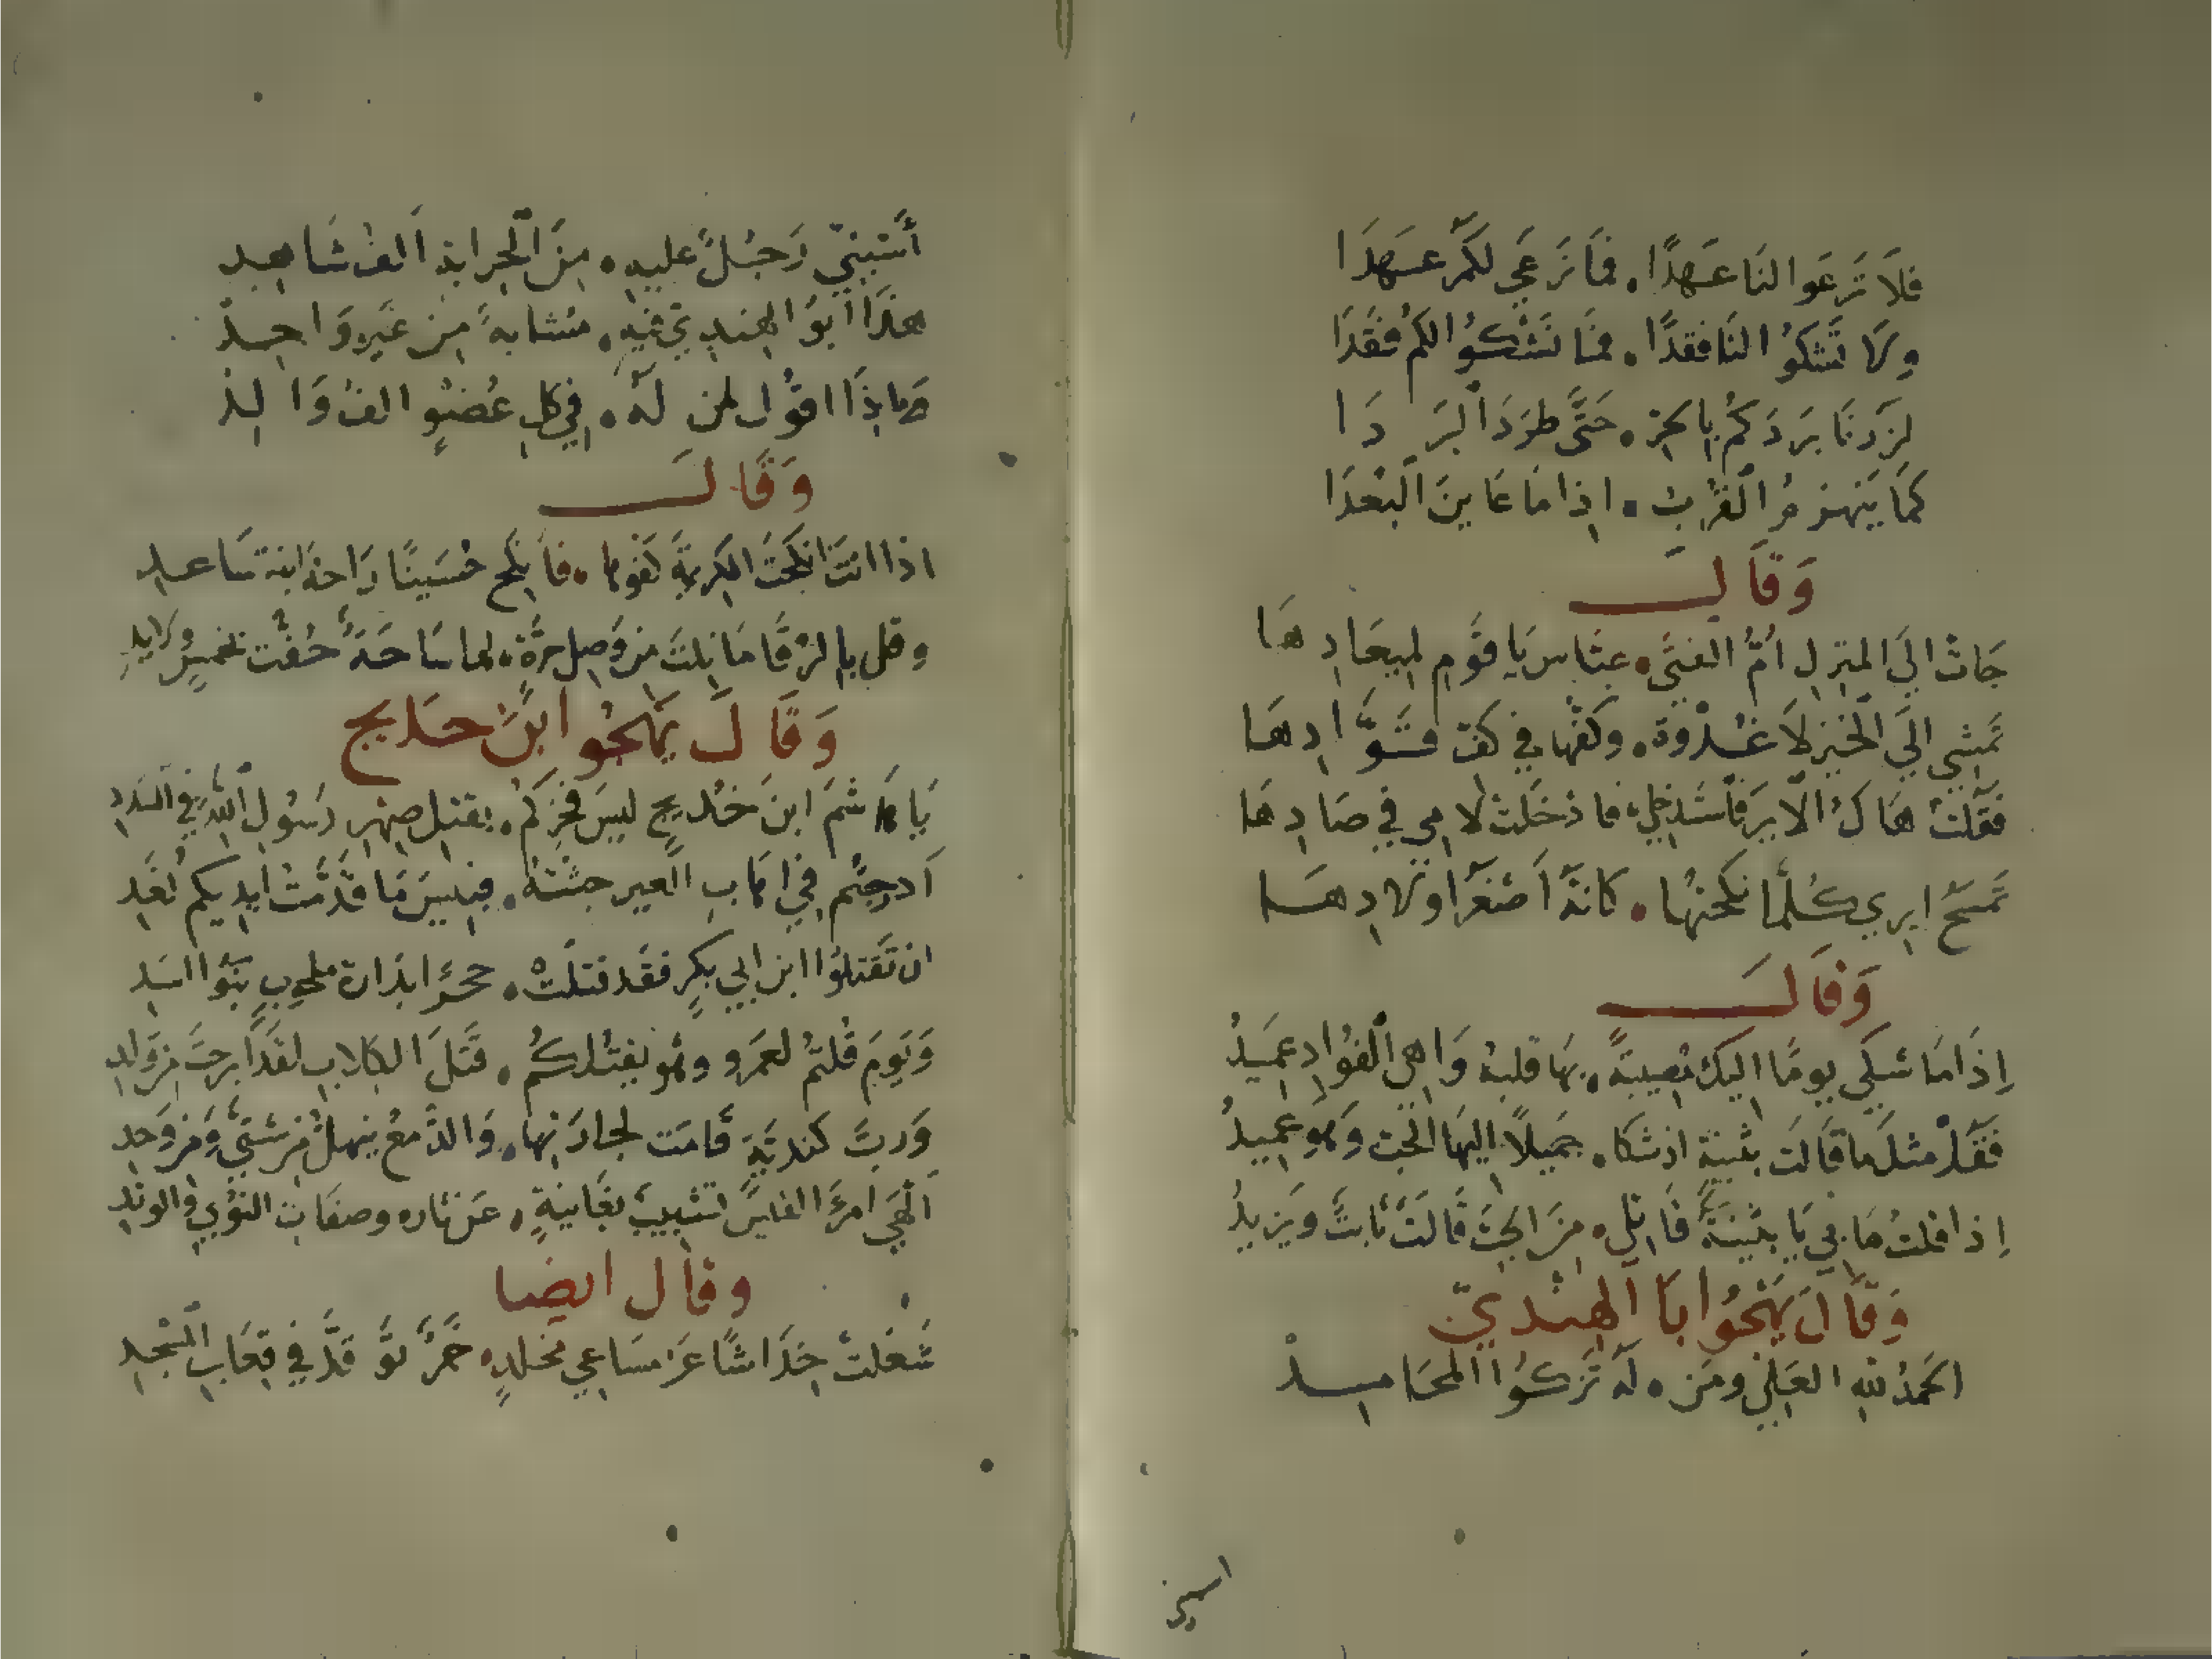 فلَا تَرعَوا لنَا عَهدًا. فمَا نَرعَي لكمُ عَهدَا
ولا تَشكوُا لنَا فقدًا. فمَا نَشكوُا لكمُ فقدَا
لزَدنَا بَردَكمُ بالحَرِّ. حَتَّى طرَدَ البَردَا
كمَا يَنهزمُ القُربُ. اذا مَا عَاينَ البُعدَا
وَقَالَ
جَات الَي المنزلِ امُّ الفتَي. عبَّاس يَا قومِ لميعَادِهَا
تمشِي الَي الخبز لَا غدوة. وكفُّها في كفّ قوَّادِهَا
فقلتُ هَاك الَايرَ فاستَدخلي. فادخلت لامِي في صَادِهَا
تمسَحُ ايري كلّما نكحتُها. كانهُ اصغرُ اولادِهَا
وَقَالَ
إذَا مَا شكَي يومًا اليكَ مُصيبةً. بهَا قلبهُ وَاهي الفؤادِ عميدُ
فقلْ مثلَ ما قَالَت بثينة اذ شكا. جميلًا اليهَا الحبَّ وَهو عميدُ
إذا قلتُ مَا بي يَا بثينَةُ قَاتلي. منَ الحبّ قَالتْ ثَابتٌ ويَزيدُ
وَقَالَ يَهْجُوا ابَا الهِنْديّ
الحَمدُ للهِ العَليّ ومَن. لهُ تَزكوُا المحَامِدْ
أَتسُبُّنيِ رَجُلٌ عليهِ. منَ الحرابة الفُ شَاهِد
هذَا ابوُ الهندِيّ فيهِ. مشَابهٌ مِن غَيرِ وَاحِدْ
مَاذَا اقوُل لمن لَهُ. في كلّ عُضوٍ الفُ وَالِدْ
وَقَالَ
اذا انتَ انكحتَ الكريمَةَ كفوها. فانكح حُسَينًا رَاحة ابنة سَاعدِ
وقل بالرّفَا مَا نلتَ من وَصلِ حرَّةٍ. لها سَاحَةٌ حُفَّت بخمسِ ولَايدِ
وَقَالَ يَهْجُو ابْنَ حدَيج
يَا هَاشمَ ابنَ خُدَيجٍ ليسَ فخركمُ. بقتلِ صهرِ رَسُولِ اللهِ في السَّدَدِ
أَدرجتُم في اهَابِ العيرِ جثّتهُ. فبيسَ مَا قدَّمَتْ ايديكم لغَدِ
ان تَقتلوُا ابن ابي بكرٍ فقَد قتلَتْ. حجرًا بدَارة ملحوبٍ بَنُوا اسَدِ
وَيَومَ قُلتُم لعمرو وهو يقتلكُم. قَتلَ الكلابِ لقَد ابرحتَ من وَلدِ
وَربَّ كنديَّةٍ قامَت لجارَتها. وَالدَّمعُ ينهلُّ من مَثنَي وَمن وَحدِ
أَلهَي امرَأَ القيسِ تشبيبٌ بغَانيةٍ. عَن ثاره وصفَات النؤيِ والوتدِ
وقال ايضا
شَغلَتْ خِدَاشًا عَن مسَاعي مَخلدٍ. خمرٌ توَقَّدُ في قعَابِ العسْجدِ